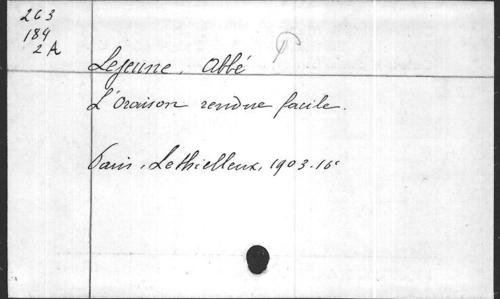 263
184
2A
Lejeune, Abbé
L'Oraison rendue facile.
Paris, Lethielleux, 1903. 16°